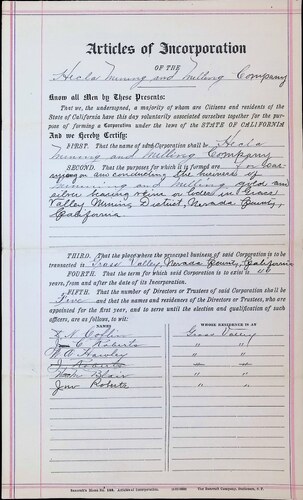 Articles of Incorporation
OF THE
Hecla Mining and Milling Company
Know all Men by These Presents:
That we, the undersigned, a majority of whom are Citizens and residents of the
State of California have this day voluntarily associated ourselves together for the pur-
pose of forming a Corporation under the laws of the STATE OF CALIFORNIA
And we Hereby Certify:
FIRST. That the name of said Corporation shall be Hecla
Mining and Milling Company
SECOND. That the purposes for which it is formed are For
and conducting the business of
mining and gold and
silver bearing veins or lodes in Grass
Valley Mining District, Nevada County,
California
THIRD. That the place where the principal business of said Corporation is to be
transacted is Grass Valley, Nevada County, California
FOURTH. That the term for which said Corporation is to exist is
years, from and after the date of its Incorporation.
FIFTH. That the number of Directors or Trustees of said Corporation shall be
Five and that the names and residences of the Directors or Trustees, who are
appointed for the first year, and to serve until the election and qualification of such
officers, are as follows, to wit:
NAMES WHOSE RESIDENCE IS AN
Coffin Grass Valley
C Roberts " "
Hawley " "
J Roberts " "
Blair " "
Jno Roberts " "